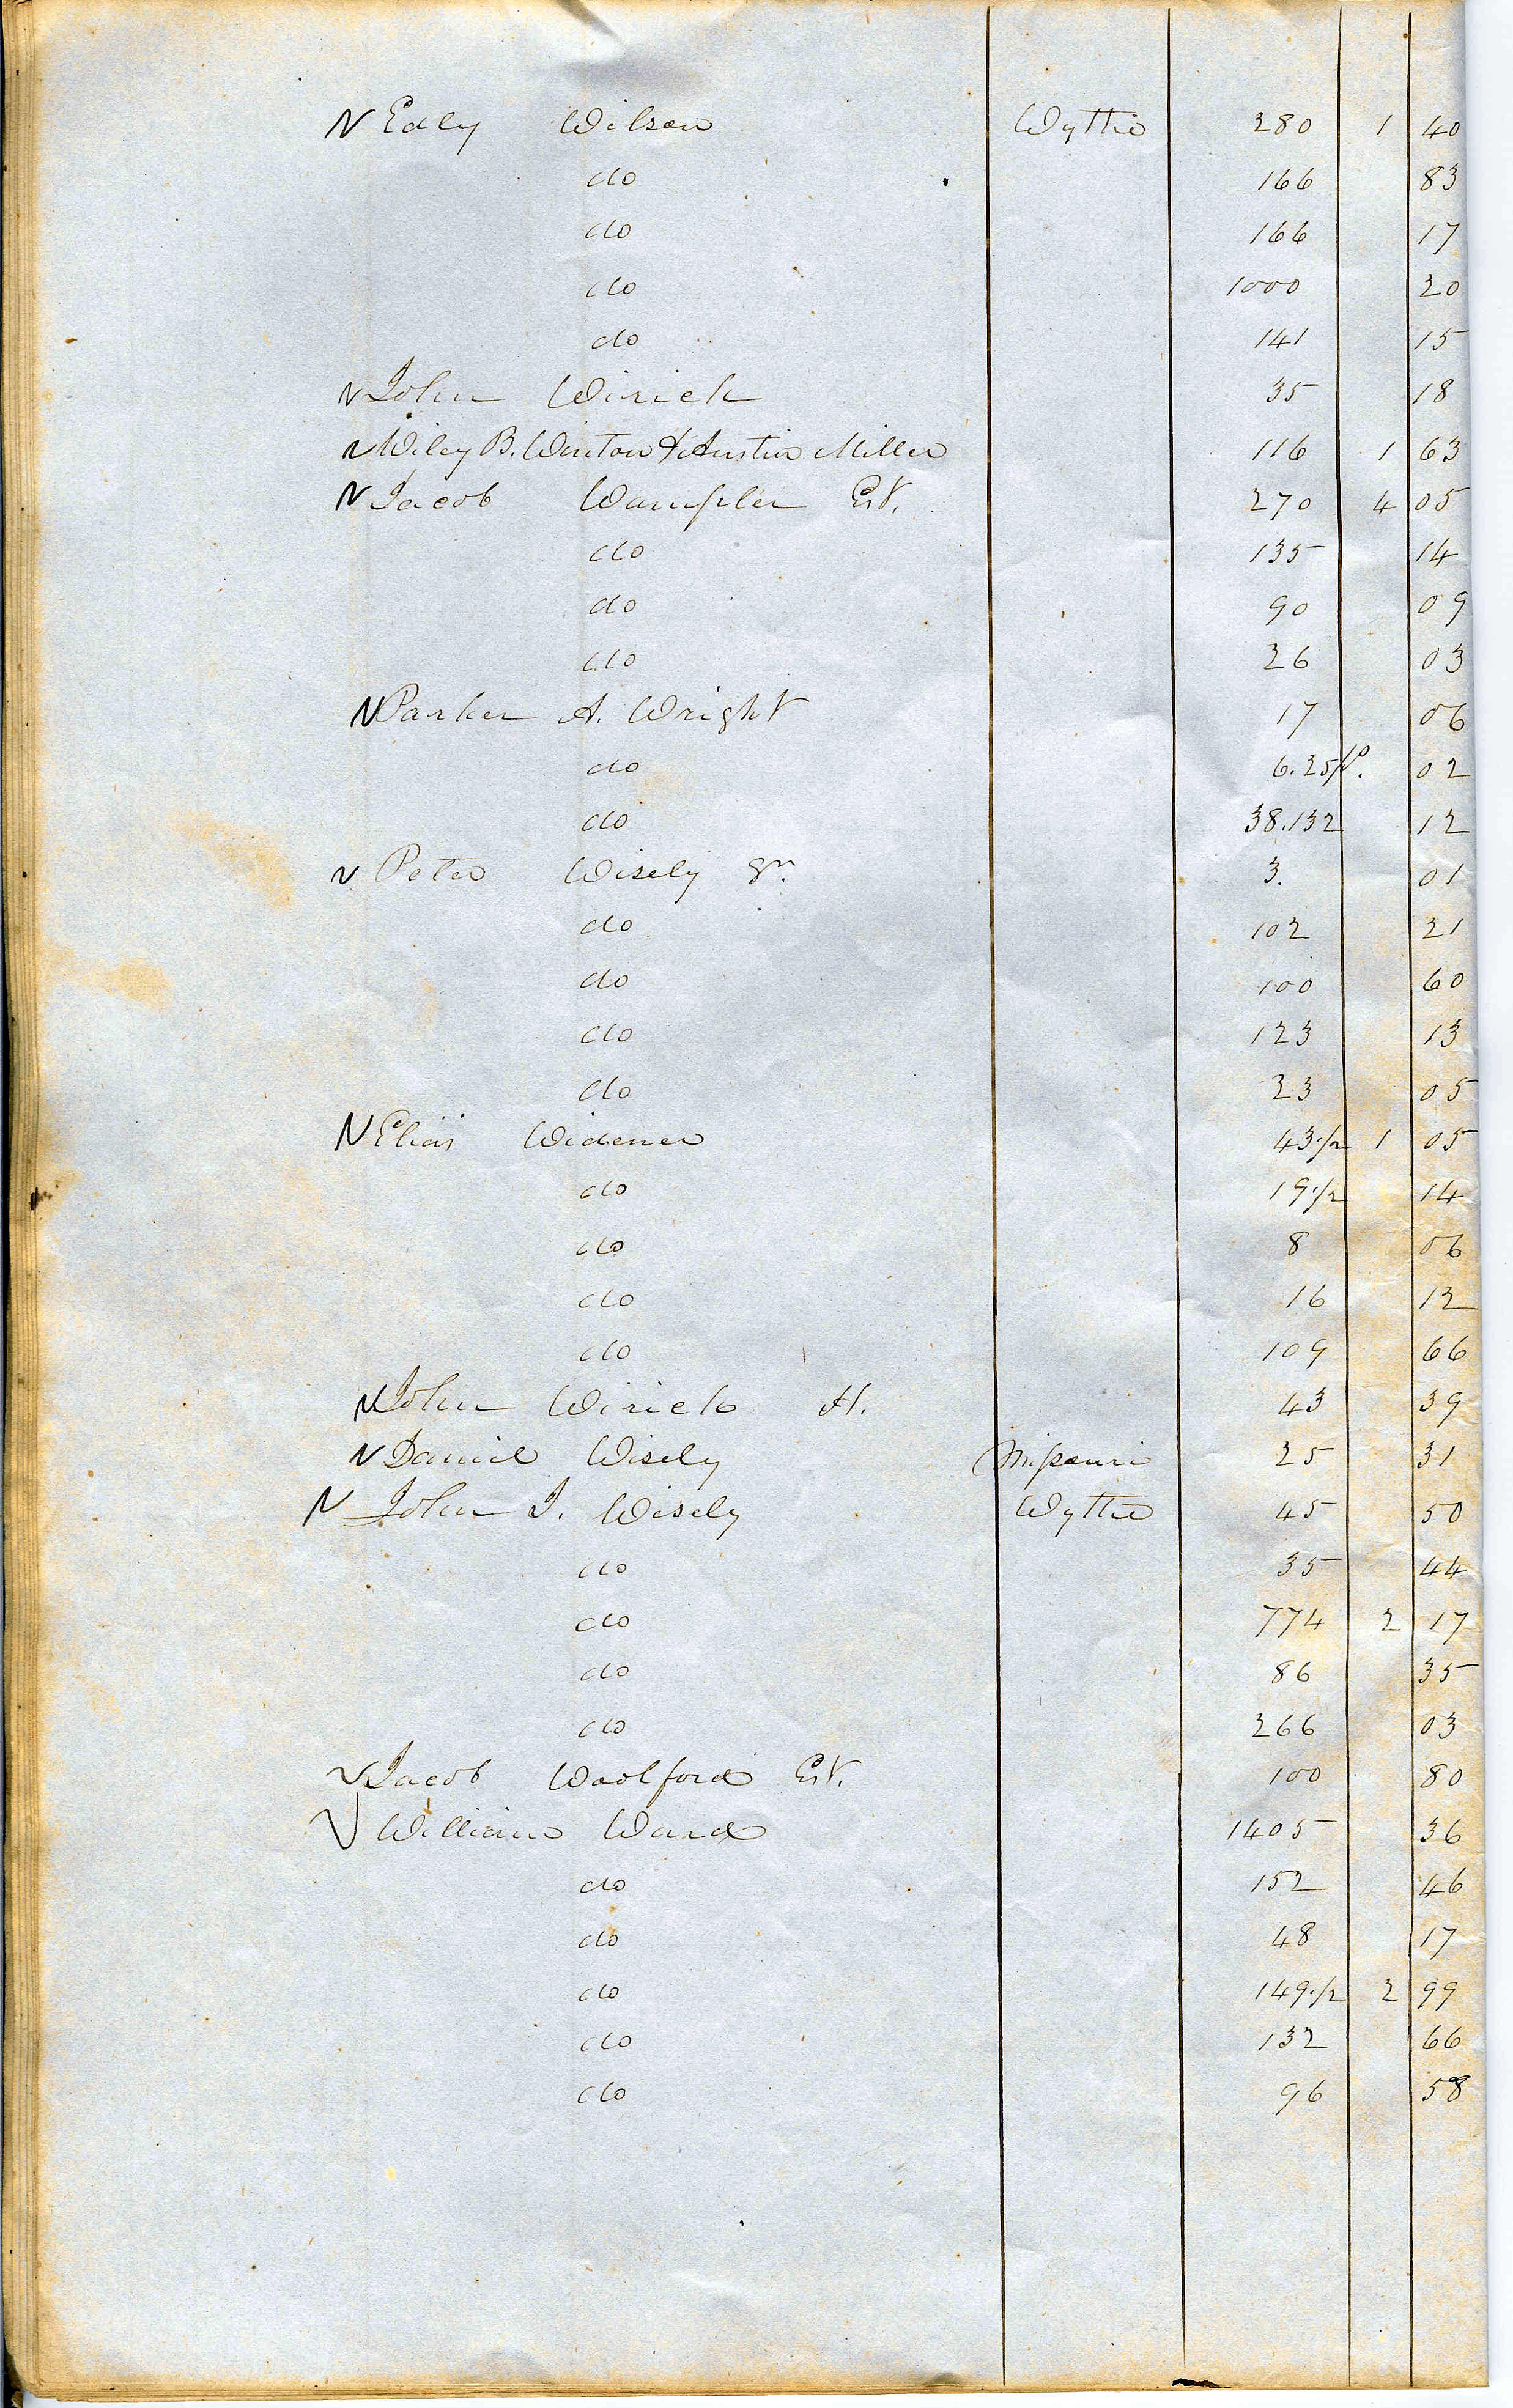 Edley Wilson Wythe 280 1 40
do 166 83
do 166 17
do 1000 20
do 141 15
John Wirick 35 18
Wiley B. Winton & Austin Miller 116 1 63
Jacob Wampler Est. 270 4 05
do 135 14
do 90 09
do 26 03
Parker A. Wright 17 06
do 6.25 P. 02
do 38.132 12
Peter Wisely Sr. 3. 01
do 102 21
do 100 60
do 123 13
do 23 05
Elias Widener 43 1/2 1 05
do 19 1/2 14
do 8 06
do 16 12
do 109 66
John Wirick H. 43 39
Daniel Wisely Missouri 25 31
John J. Wisely Wythe 45 50
do 35 44
do 774 2 17
do 86 35
do 266 03
Jacob Woolford Est. 100 80
William Ward 1405 36
do 152 46
do 48 17
do 149 1/2 2 99
do 132 66
do 96 58